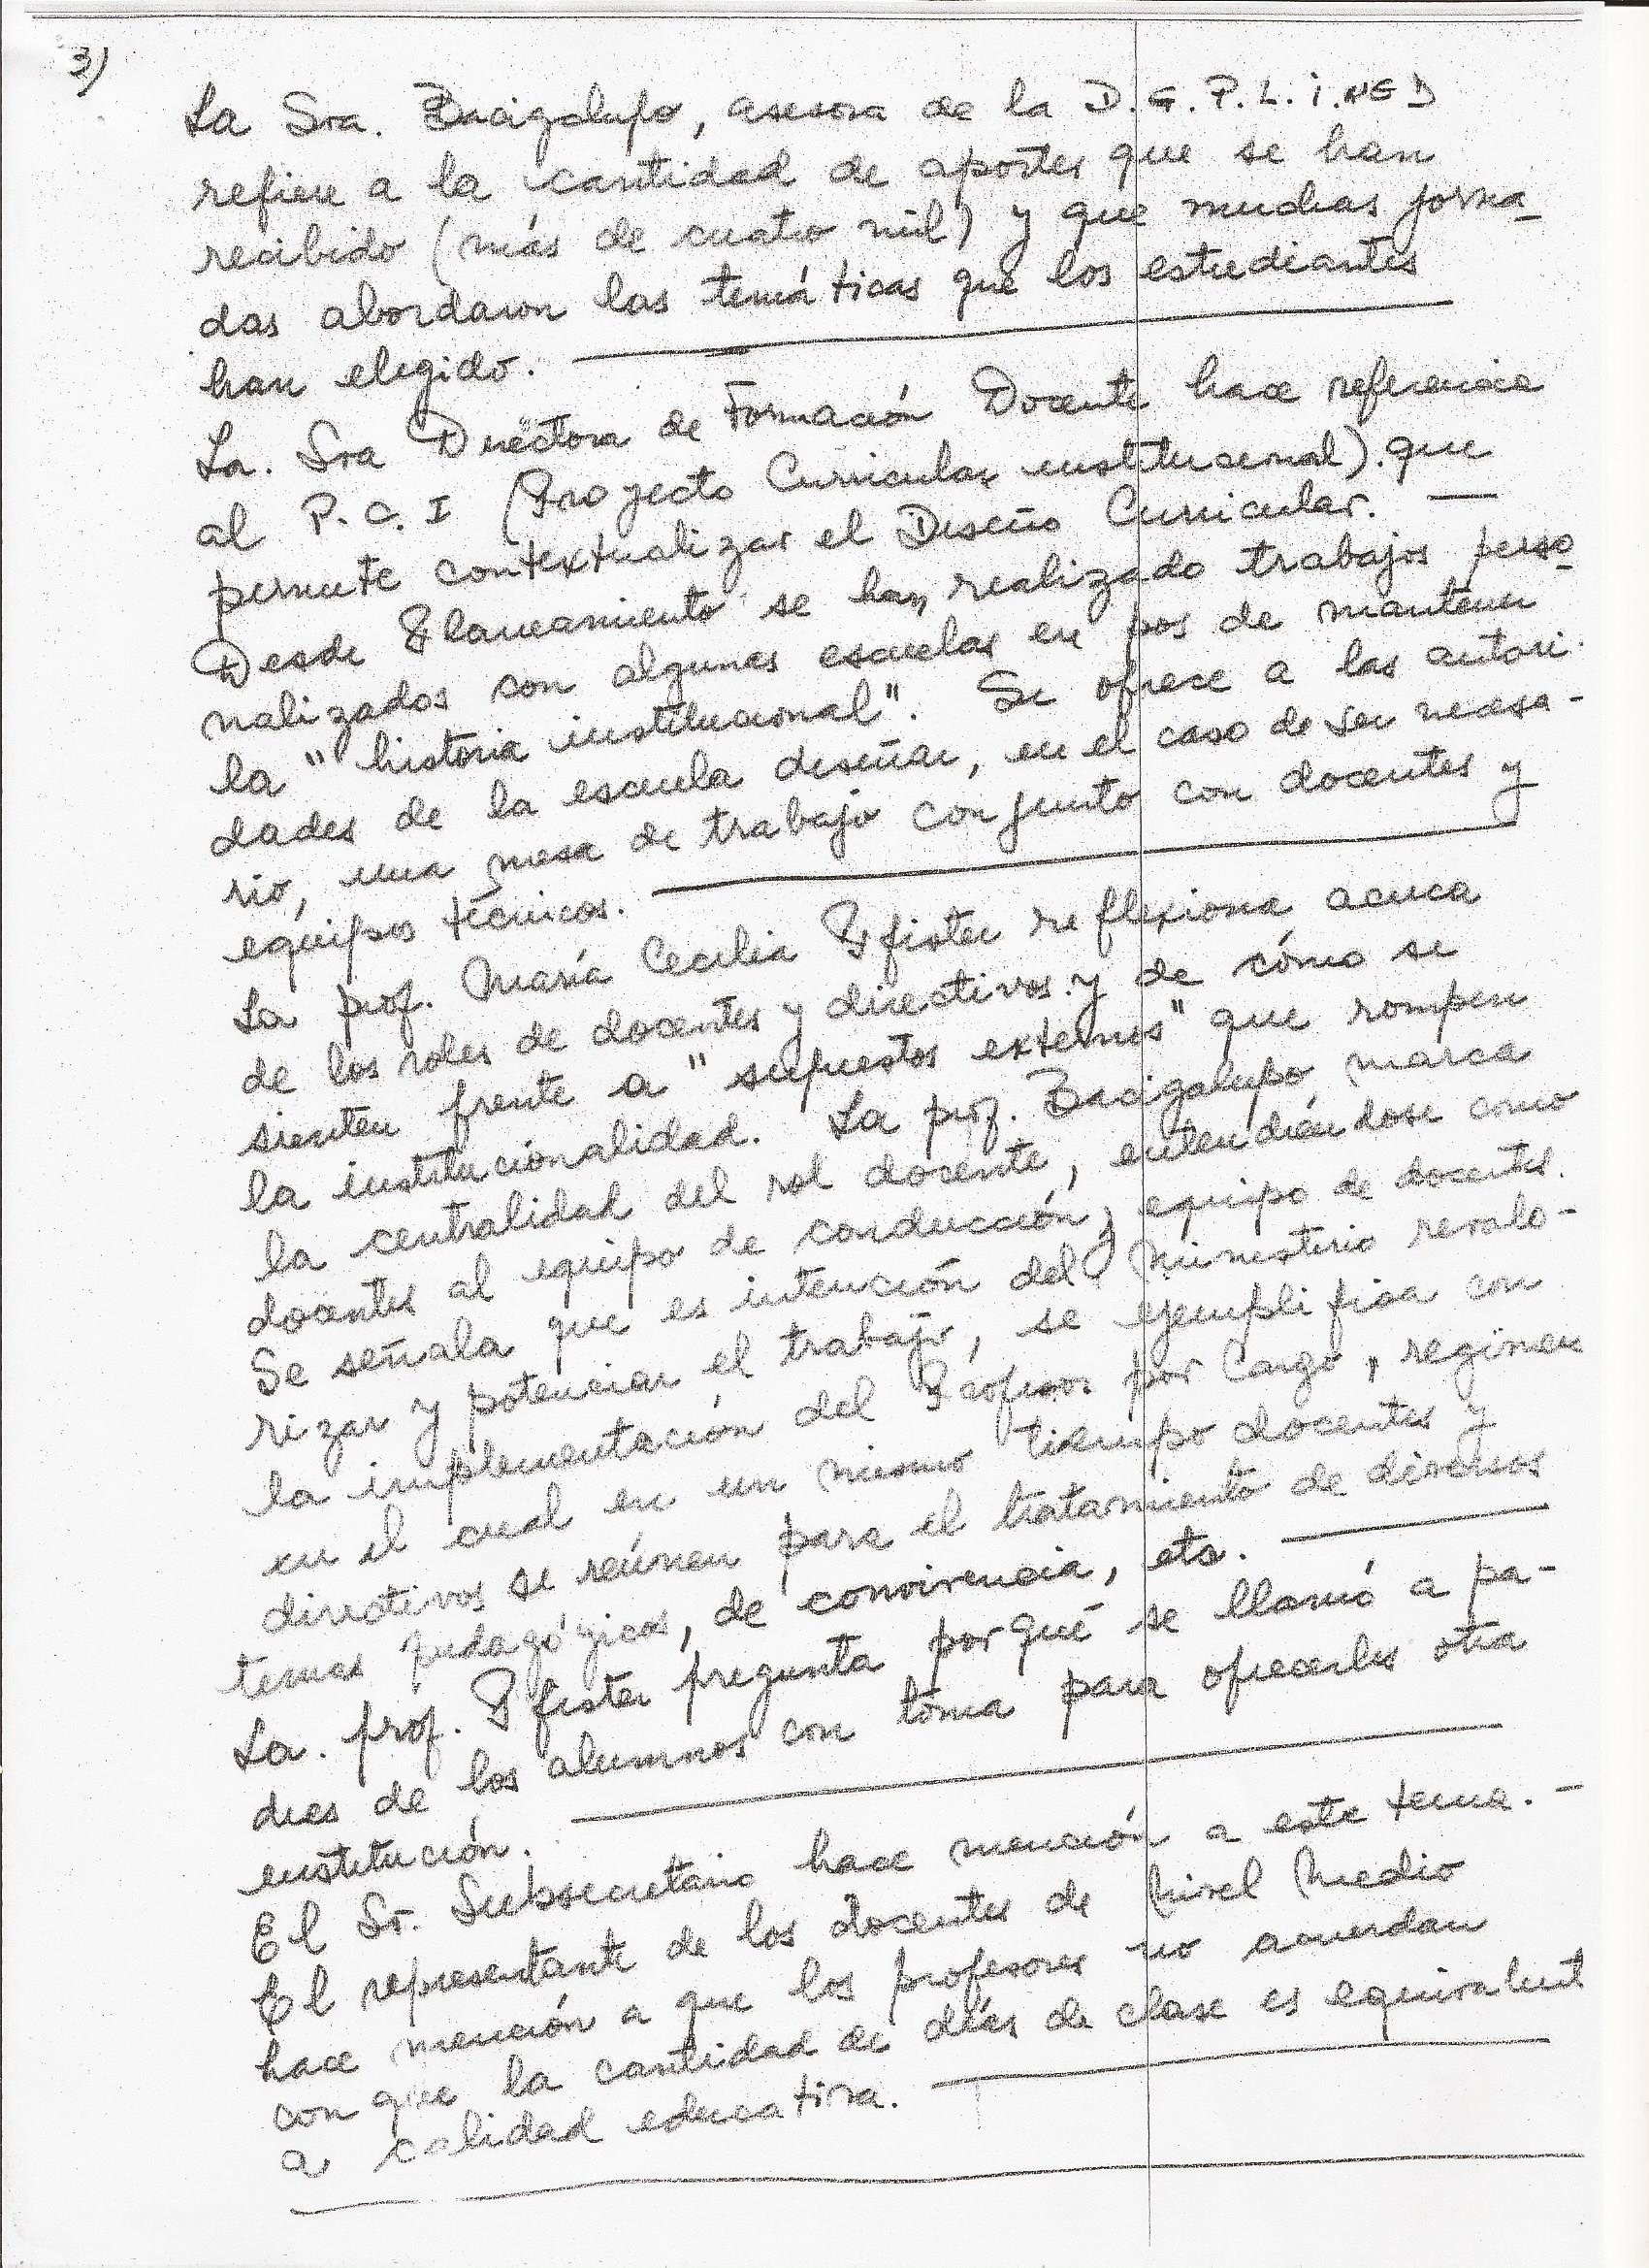 3)
La Sra. Bacigalupo, asesora de la D.G.P.L.i.NED
refiere a la cantidad de aportes que se han
recibido (más de cuatro mil) y que muchas jorna-
das abordaron las temáticas que los estudiantes
han elegido.
La. Sra Directora de Formación Docente hace referencia
al P.C.I (Proyecto Curricular institucional) que
permite contextualizar el Diseño Curricular. —
Desde Planeamiento se han realizado trabajos perso-
nalizados con algunas escuelas en pos de mantener
la "historia institucional". Se ofrece a las autori-
dades de la escuela diseñar, en el caso de ser necesa-
rio, una mesa de trabajo conjunto con docentes y
equipos técnicos.
La prof. María Cecilia Pfister reflexiona acerca
de los roles de docentes y directivos y de cómo se
sienten frente a "supuestos externos" que rompen
la institucionalidad. La prof. Bacigalupo marca
la centralidad del rol docente, entendiéndose como
docentes al equipo de conducción y equipo de docentes.
Se señala que es intención del Ministerio revalo-
rizar y potenciar el trabajo, se ejemplifica con
la implementación del Profesor por Cargo, regimen
en el cual en un mismo tiempo docentes y
directivos se reúnen para el tratamiento de diversos
temas pedagógicos, de convivencia, etc.
La. prof. Pfister pregunta por qué se llamó a pa-
dres de los alumnos con toma para ofrecerles otra
institución.
El Sr. Subsecretario hace mención a este tema. —
El representante de los docentes de Nivel Medio
hace mención a que los profesores no acuerdan
con que la cantidad de días de clase es equivalent
a calidad educativa.